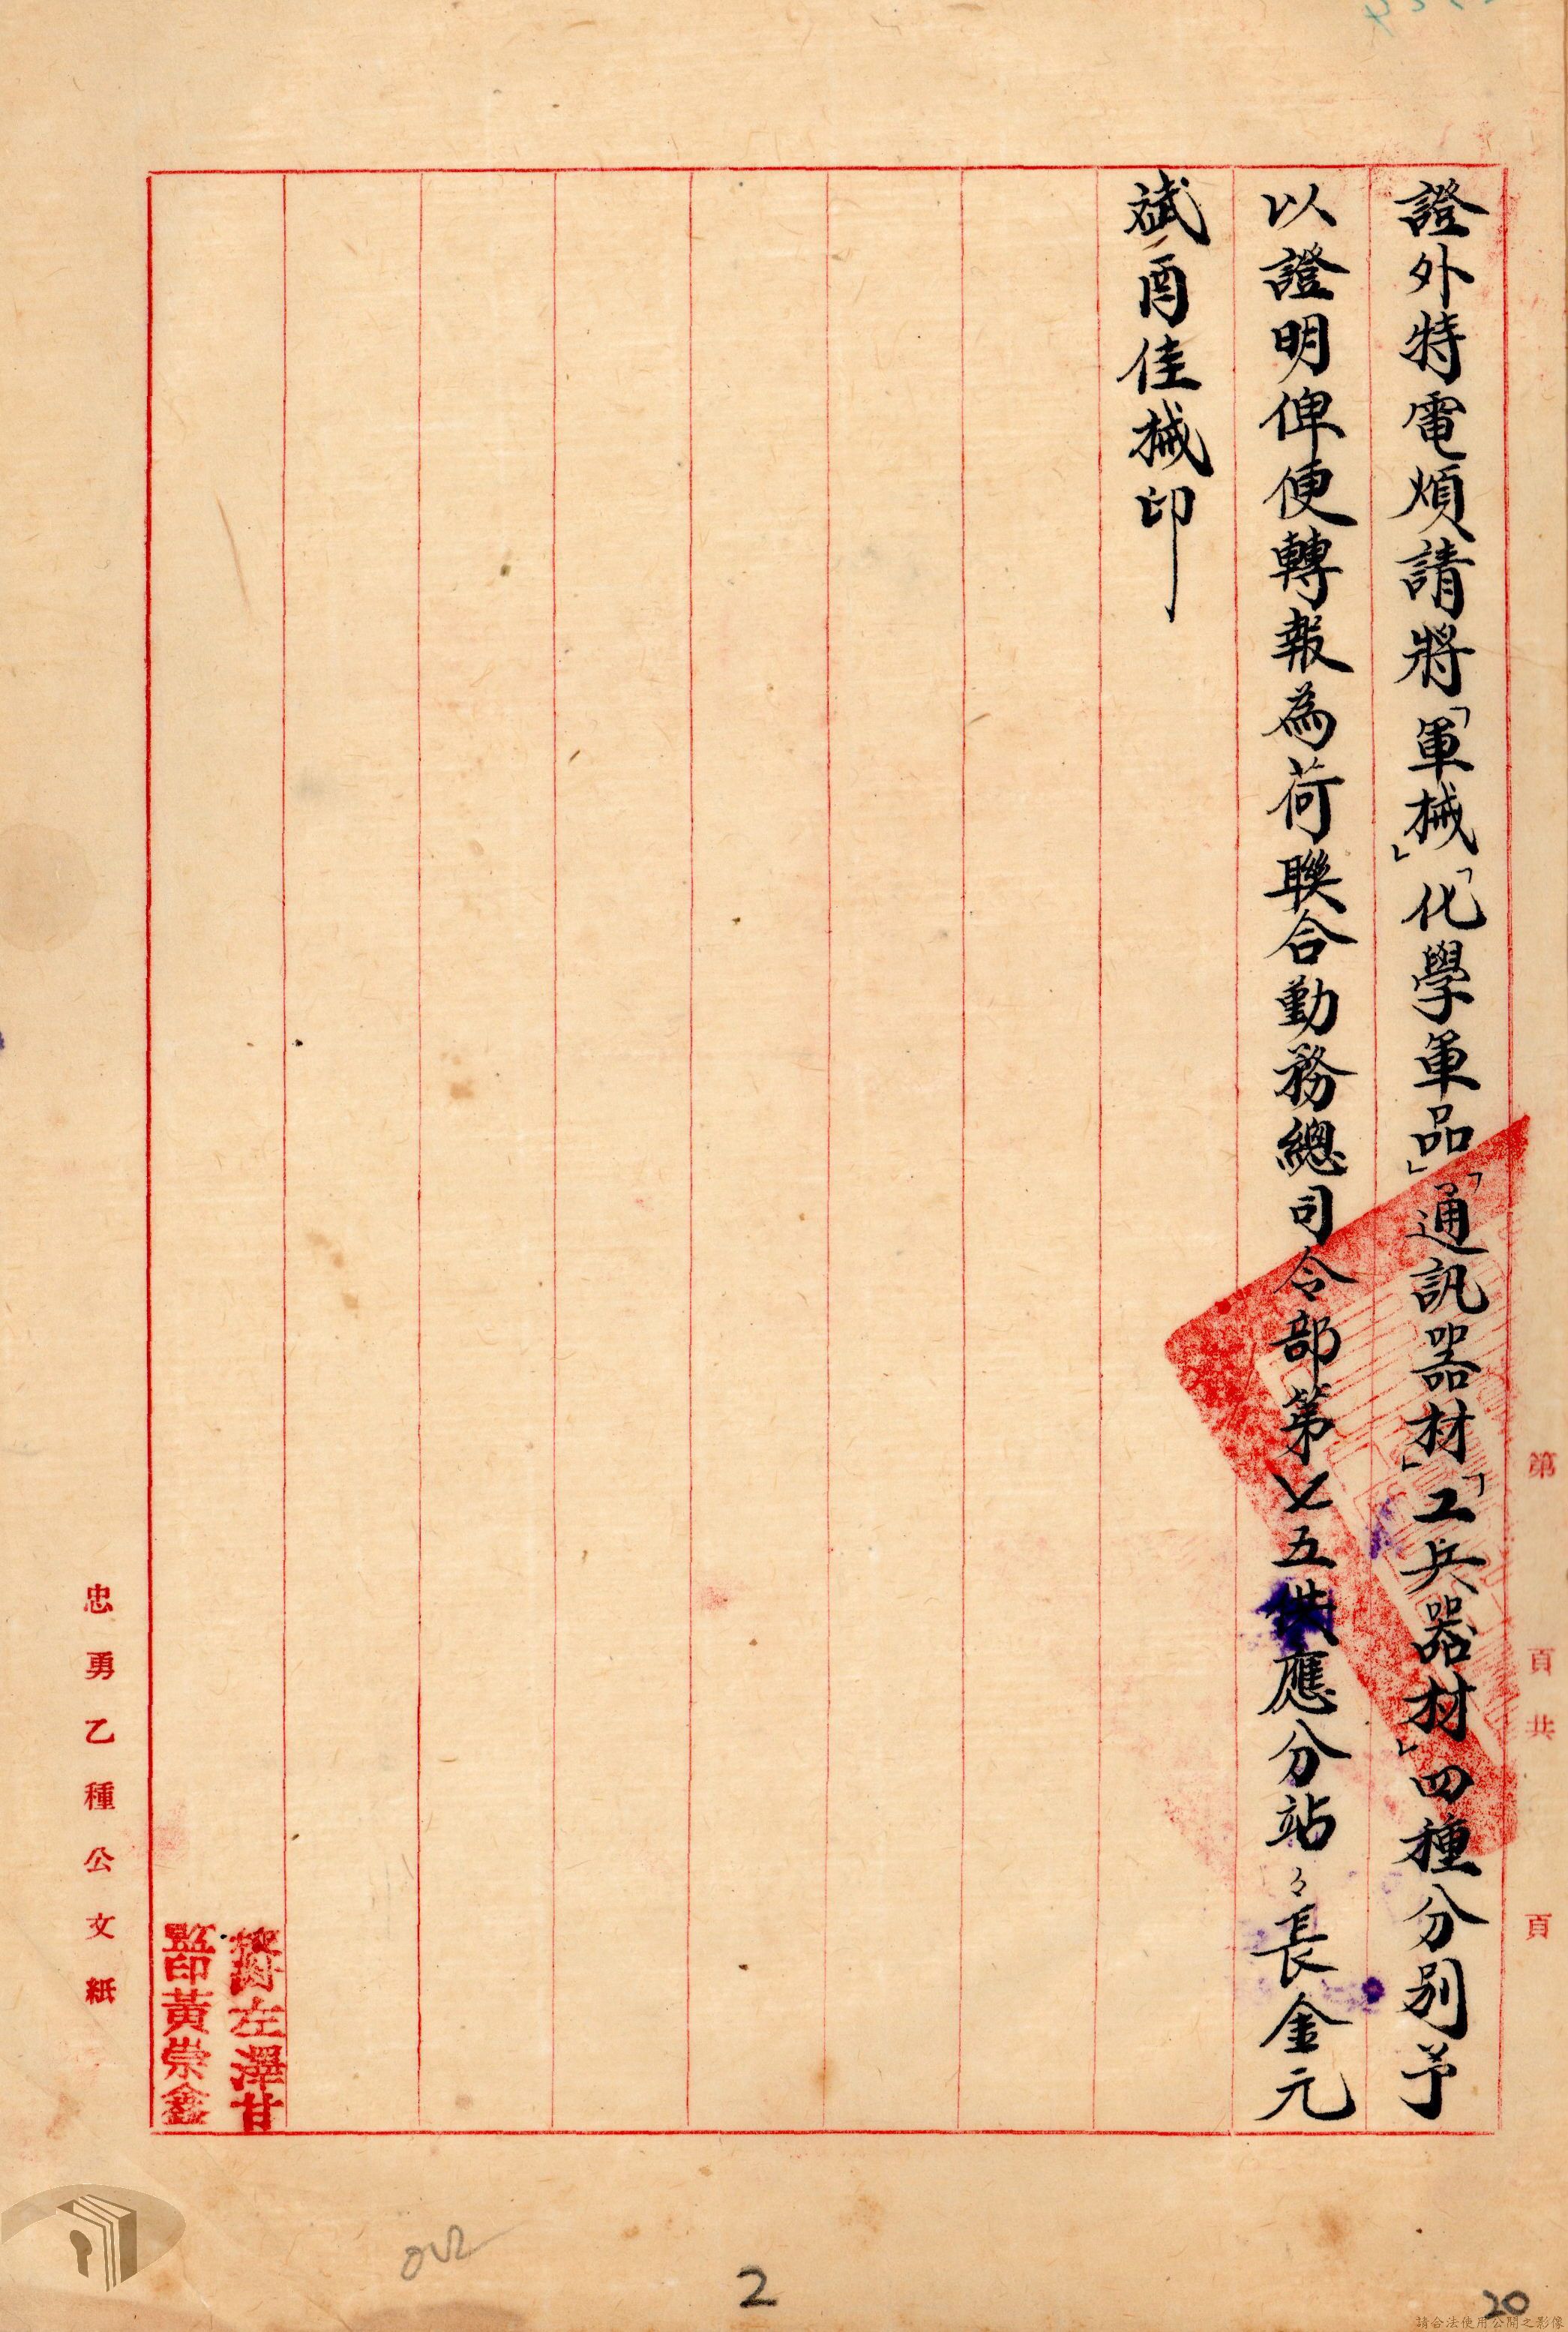 證外特電煩請將「軍械」「化學軍品」「通訊器材」「工兵器材」四種分別予
以證明俾便轉報為荷聯合勤務總司令部第七五供應分站々長金元
斌酉佳械印
第 頁共 頁
左澤甘
監印黃崇鑫
忠勇乙種公文紙
2
20
請合法使用公開之影像